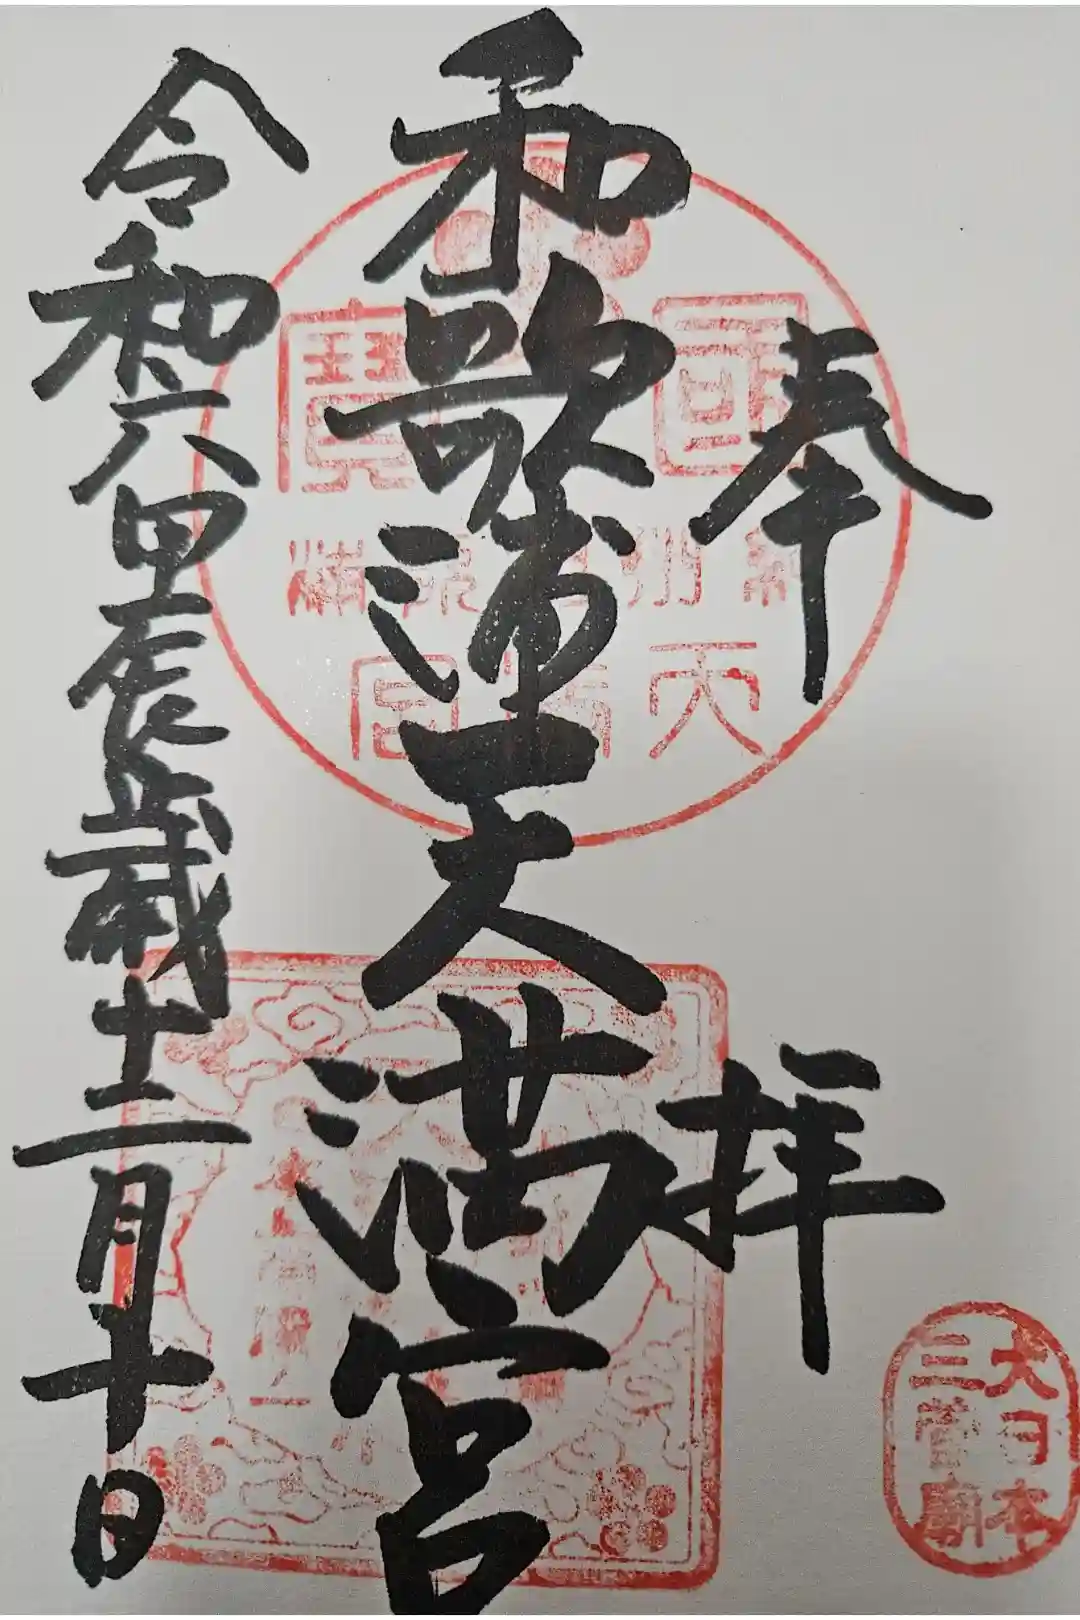 奉拝
和歌浦天満宮
令和六甲辰歳十二月十日
國寶
紀州和歌浦
天満宮
大日本
三菅廟